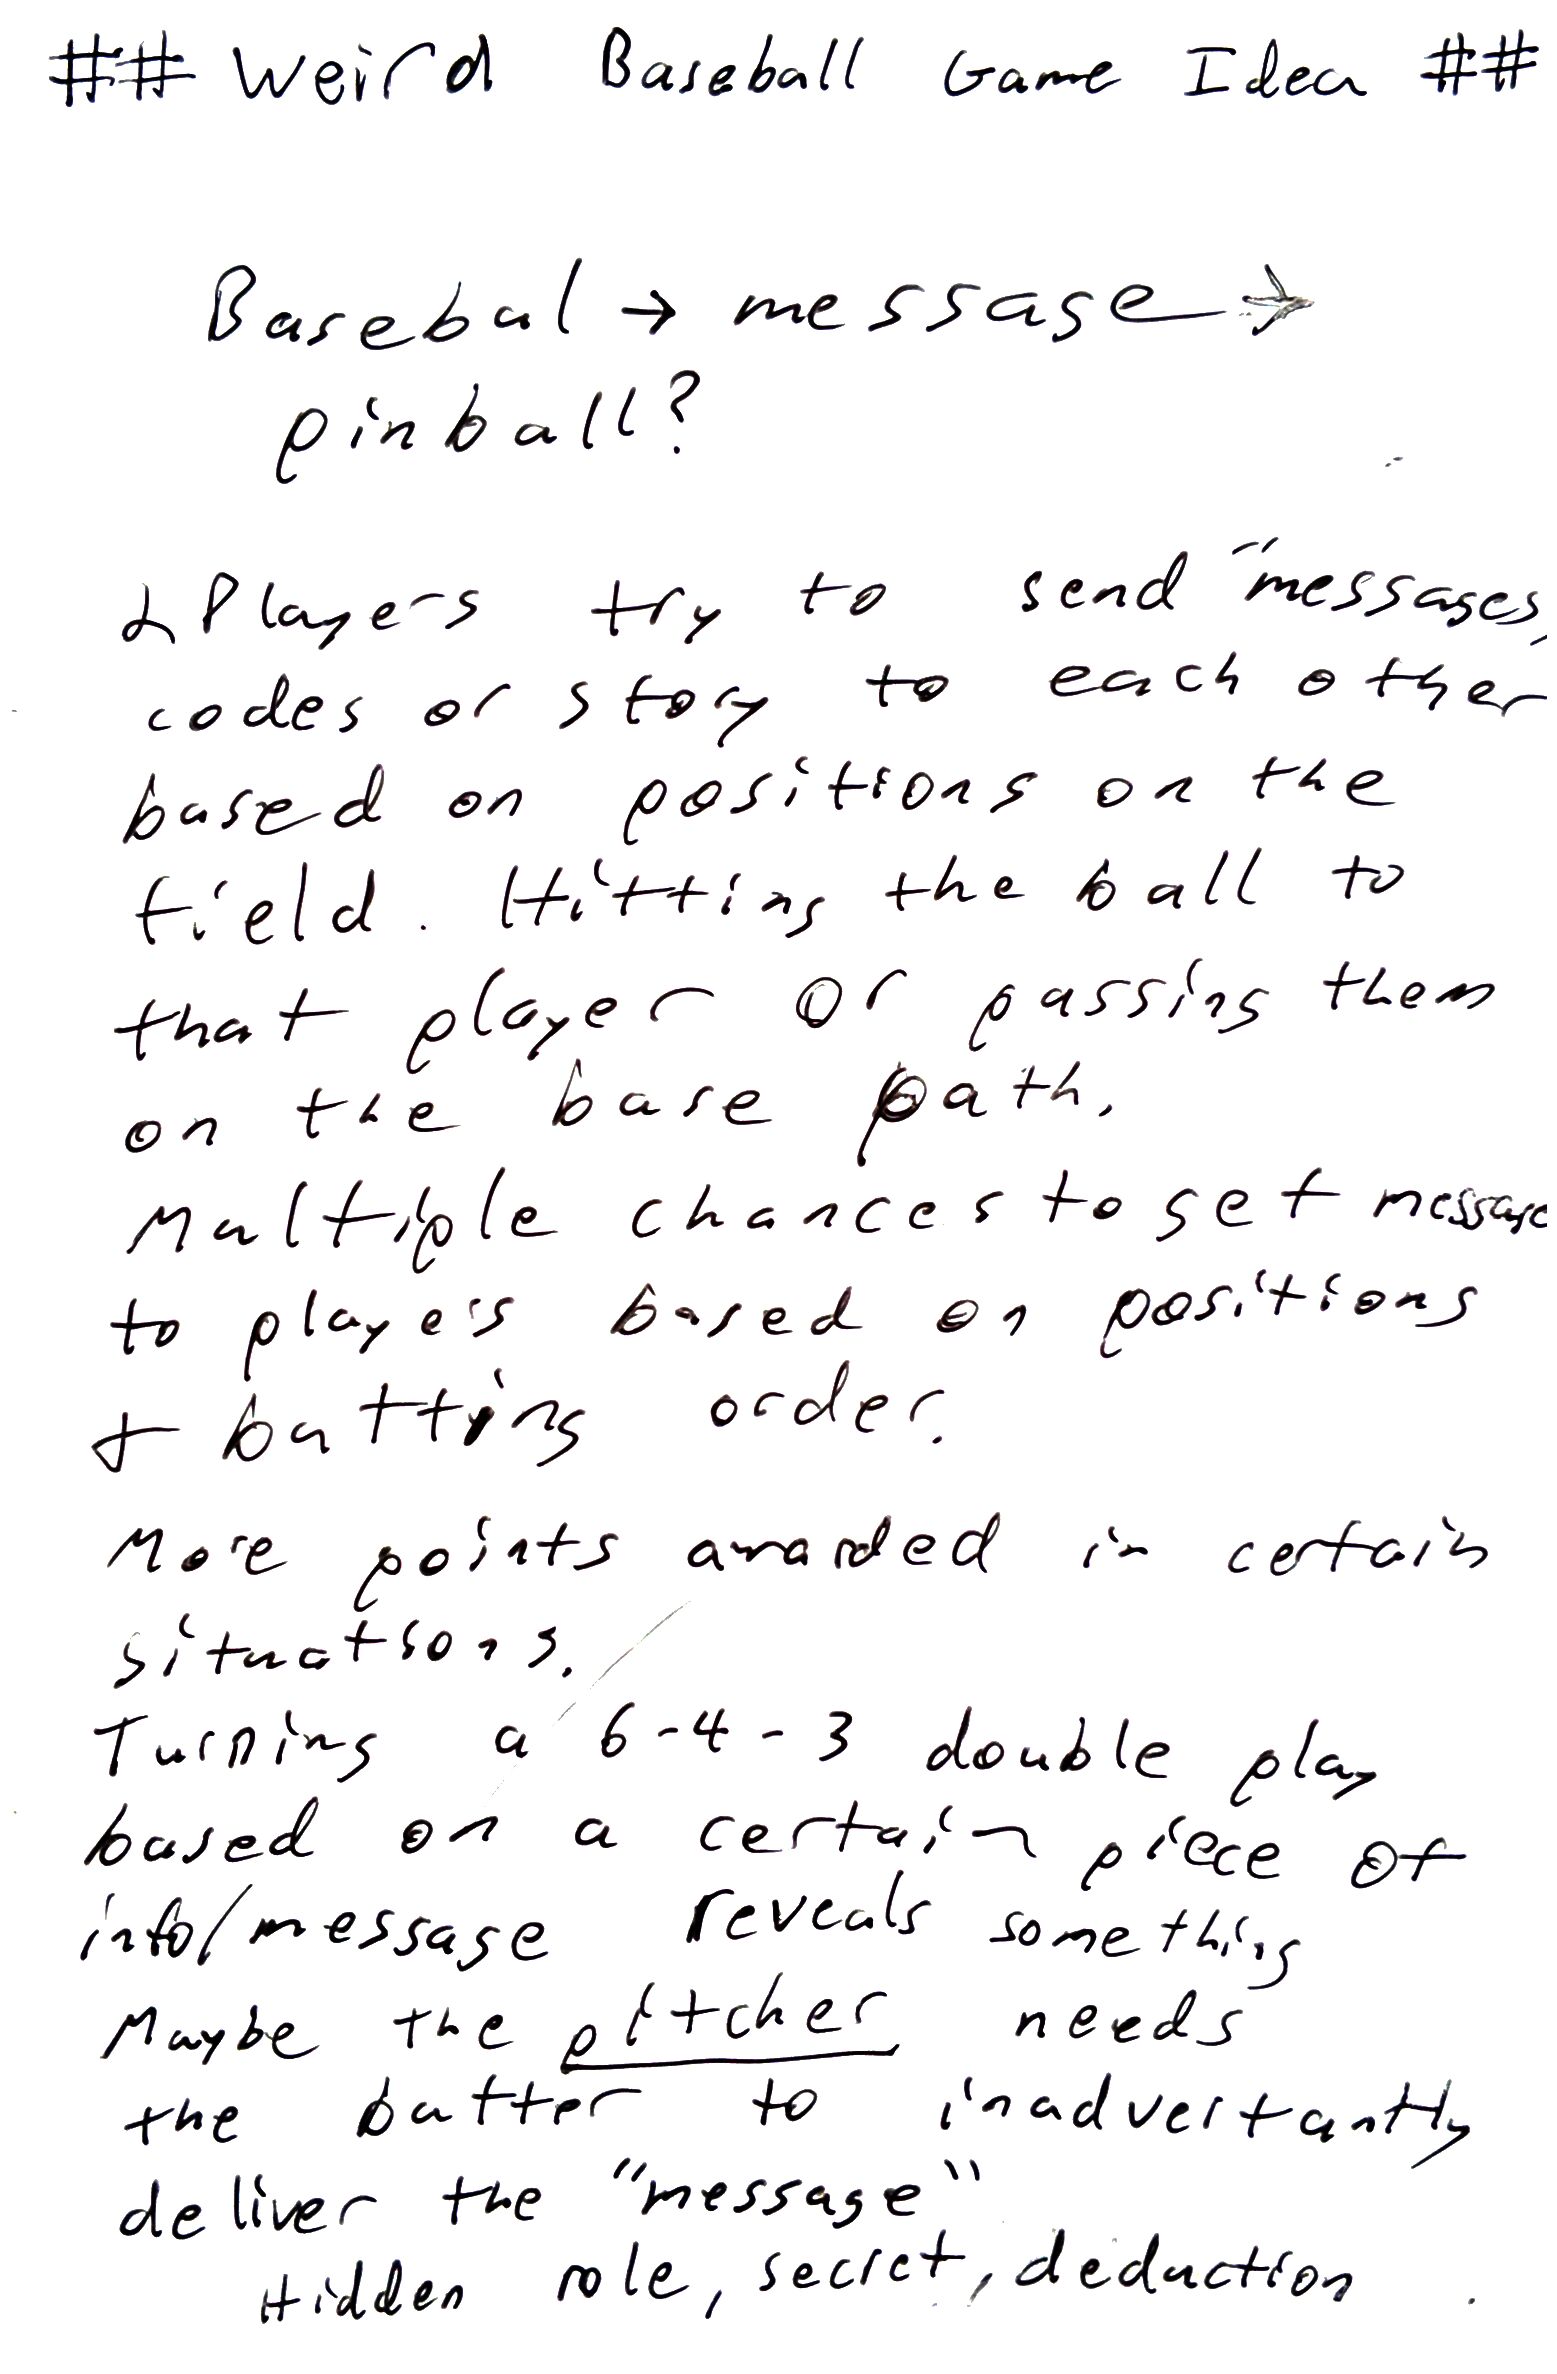 ## Weird Baseball Game Idea ##
Basebal → message →
pinball?
Players try to send "messages,
codes or story to each other
based on positions on the
field. Hitting the ball to
that player or passing them
on the base path.
Multiple chances to get message
to players based on positions
+ batting order.
More points awarded in certain
situations.
Turning a 6-4-3 double play
based on a certain piece of
info/message reveals something
Maybe the pitcher needs
the batter to inadvertantly
deliver the "message"
Hidden role, secret, deduction